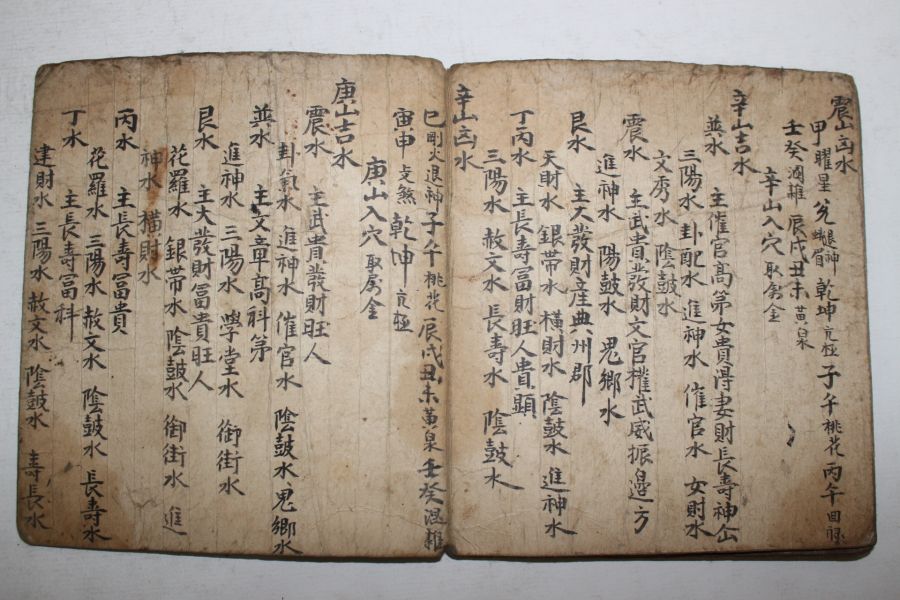 震山凶水
甲曜星 兌退神蛾眉 乾坤亢極 子午桃花 丙午回祿
壬癸溷雜 辰戌丑未黃泉
辛山入穴 取房金
辛山吉水
巽水 主催宮高第女貴得妻財長壽神仙
三陽水 卦配水 進神水 催官水 女財水
文秀水 陰鼓水
震水 主武貴發財文官權武威振邊方
進神水 陽鼓水 鬼鄉水
艮水 主大發財産典州郡
天財水 銀帶水 橫財水 陰鼓水 進神水
丁丙水 主長壽冨財旺人貴顯
三陽水 赦文水 長壽水 陰鼓水
辛山凶水
巳剛火退神 子午桃花 辰戌丑未黃泉 壬癸溷雜
寅申支煞 乾坤亢極
庚山入穴 取房金
庚山吉水
震水 主武貴發財旺人
卦氣水 進神水 催官水 陰鼓水 鬼鄉水
巽水 主文章高科第
進神水 三陽水 學堂水 御街水
艮水 主大發財冨貴旺人
花羅水 銀帶水 陰鼓水 御街水 進
神水 橫財水
丙水 主長壽冨貴
花羅水 三陽水 赦文水 陰鼓水 長壽水
丁水 主長壽冨科
建財水 三陽水 赦文水 陰鼓水 壽長水